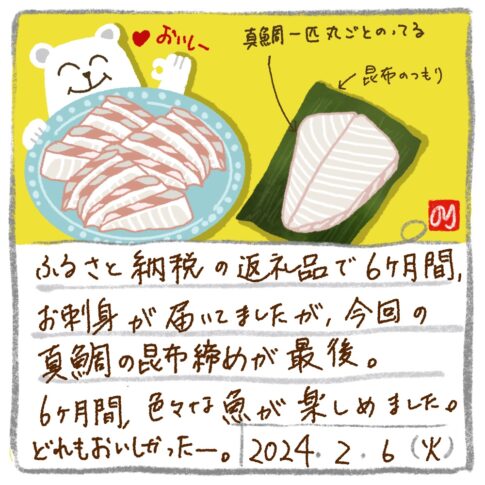 おいしー
真鯛一匹丸ごとのってる
昆布のつもり
ふるさと納税の返礼品で6ヶ月間,
お刺身が届いてましたが,今回の
真鯛の昆布締めが最後。
6ヶ月間,色々な魚が楽しめました。
どれもおいしかったー。
2024.2.6(火)